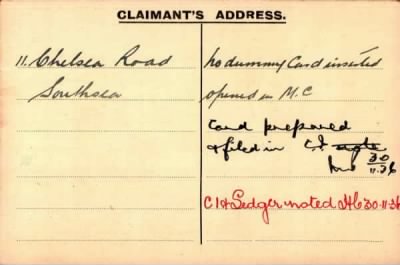 CLAIMANT'S ADDRESS.
11. Chelsea Road
Southsea
No dummy Card inserted
opened in M.C
Card prepared
& filed in
30
11.36
C I & Ledger noted HC 30.11.36